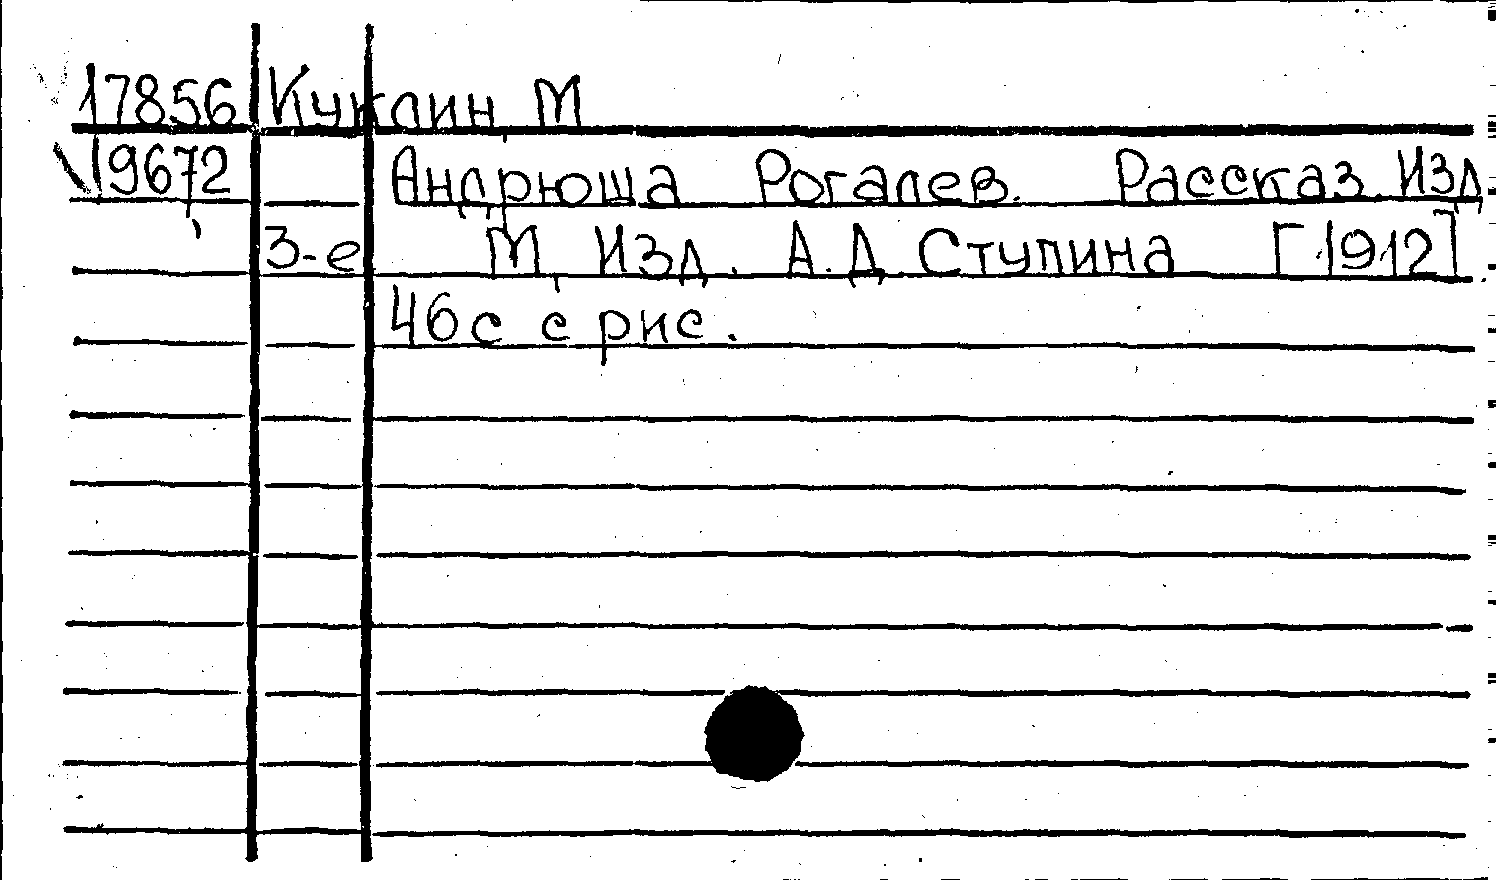 17856 Куклин, М
19672 Андрюша Рогалев. Рассказ. Изд.
3-е М, Изд. А.Д Ступина [1912].
46с с рис.